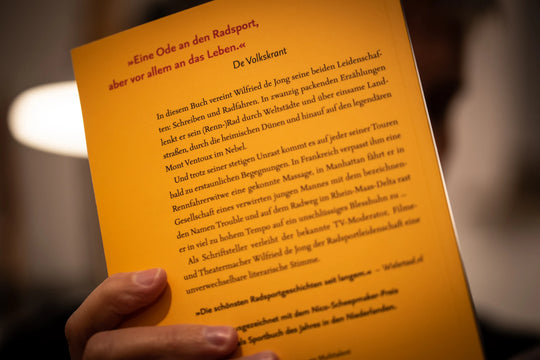 »Eine Ode an den Radsport,
aber vor allem an das Leben.«
De Volkskrant
In diesem Buch vereint Wilfried de Jong seine beiden Leidenschaf-
ten: Schreiben und Radfahren. In zwanzig packenden Erzählungen
lenkt er sein (Renn-)Rad durch Weltstädte und über einsame Land-
straßen, durch die heimischen Dünen und hinauf auf den legendären
Mont Ventoux im Nebel.
Und trotz seiner stetigen Unrast kommt es auf jeder seiner Touren
bald zu erstaunlichen Begegnungen. In Frankreich verpasst ihm eine
Rennfahrerwitwe eine gekonnte Massage, in Manhattan fährt er in
Gesellschaft eines verwirrten jungen Mannes mit dem bezeichnen-
den Namen Trouble und auf dem Radweg im Rhein-Maas-Delta rast
er in viel zu hohem Tempo auf ein unschlüssiges Blesshuhn zu ...
Als Schriftsteller verleiht der bekannte TV-Moderator, Filme-
und Theatermacher Wilfried de Jong der Radsportleidenschaft eine
unverwechselbare literarische Stimme.
»Die schönsten Radsportgeschichten seit langem.« – Wielertaal.nl
mit dem Nico-Scheepmaker-Preis
als Sportbuch des Jahres in den Niederlanden.